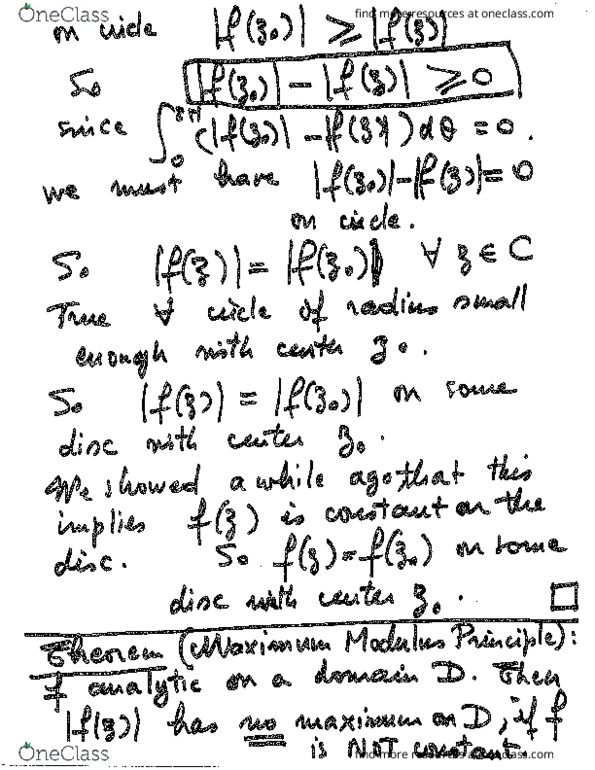 OneClass
find more resources at oneclass.com
on circle |f(z₀)| ≥ |f(z)|
So |f(z₀)| - |f(z)| ≥ 0
since ∫₀^2π (|f(z₀)| - |f(z)|) dθ = 0.
we must have |f(z₀)| - |f(z)| = 0
on circle.
So |f(z)| = |f(z₀)| ∀ z ∈ C
True ∀ circle of radius small
enough with center z₀.
So |f(z)| = |f(z₀)| on some
disc with center z₀.
We showed a while ago, that this
implies f(z) is constant on the
disc. So f(z) = f(z₀) on some
disc with center z₀. □
Theorem (Maximum Modulus Principle):
f analytic on a domain D. Then
|f(z)| has no maximum on D, if f
is NOT constant.
OneClass
find more resources at oneclass.com